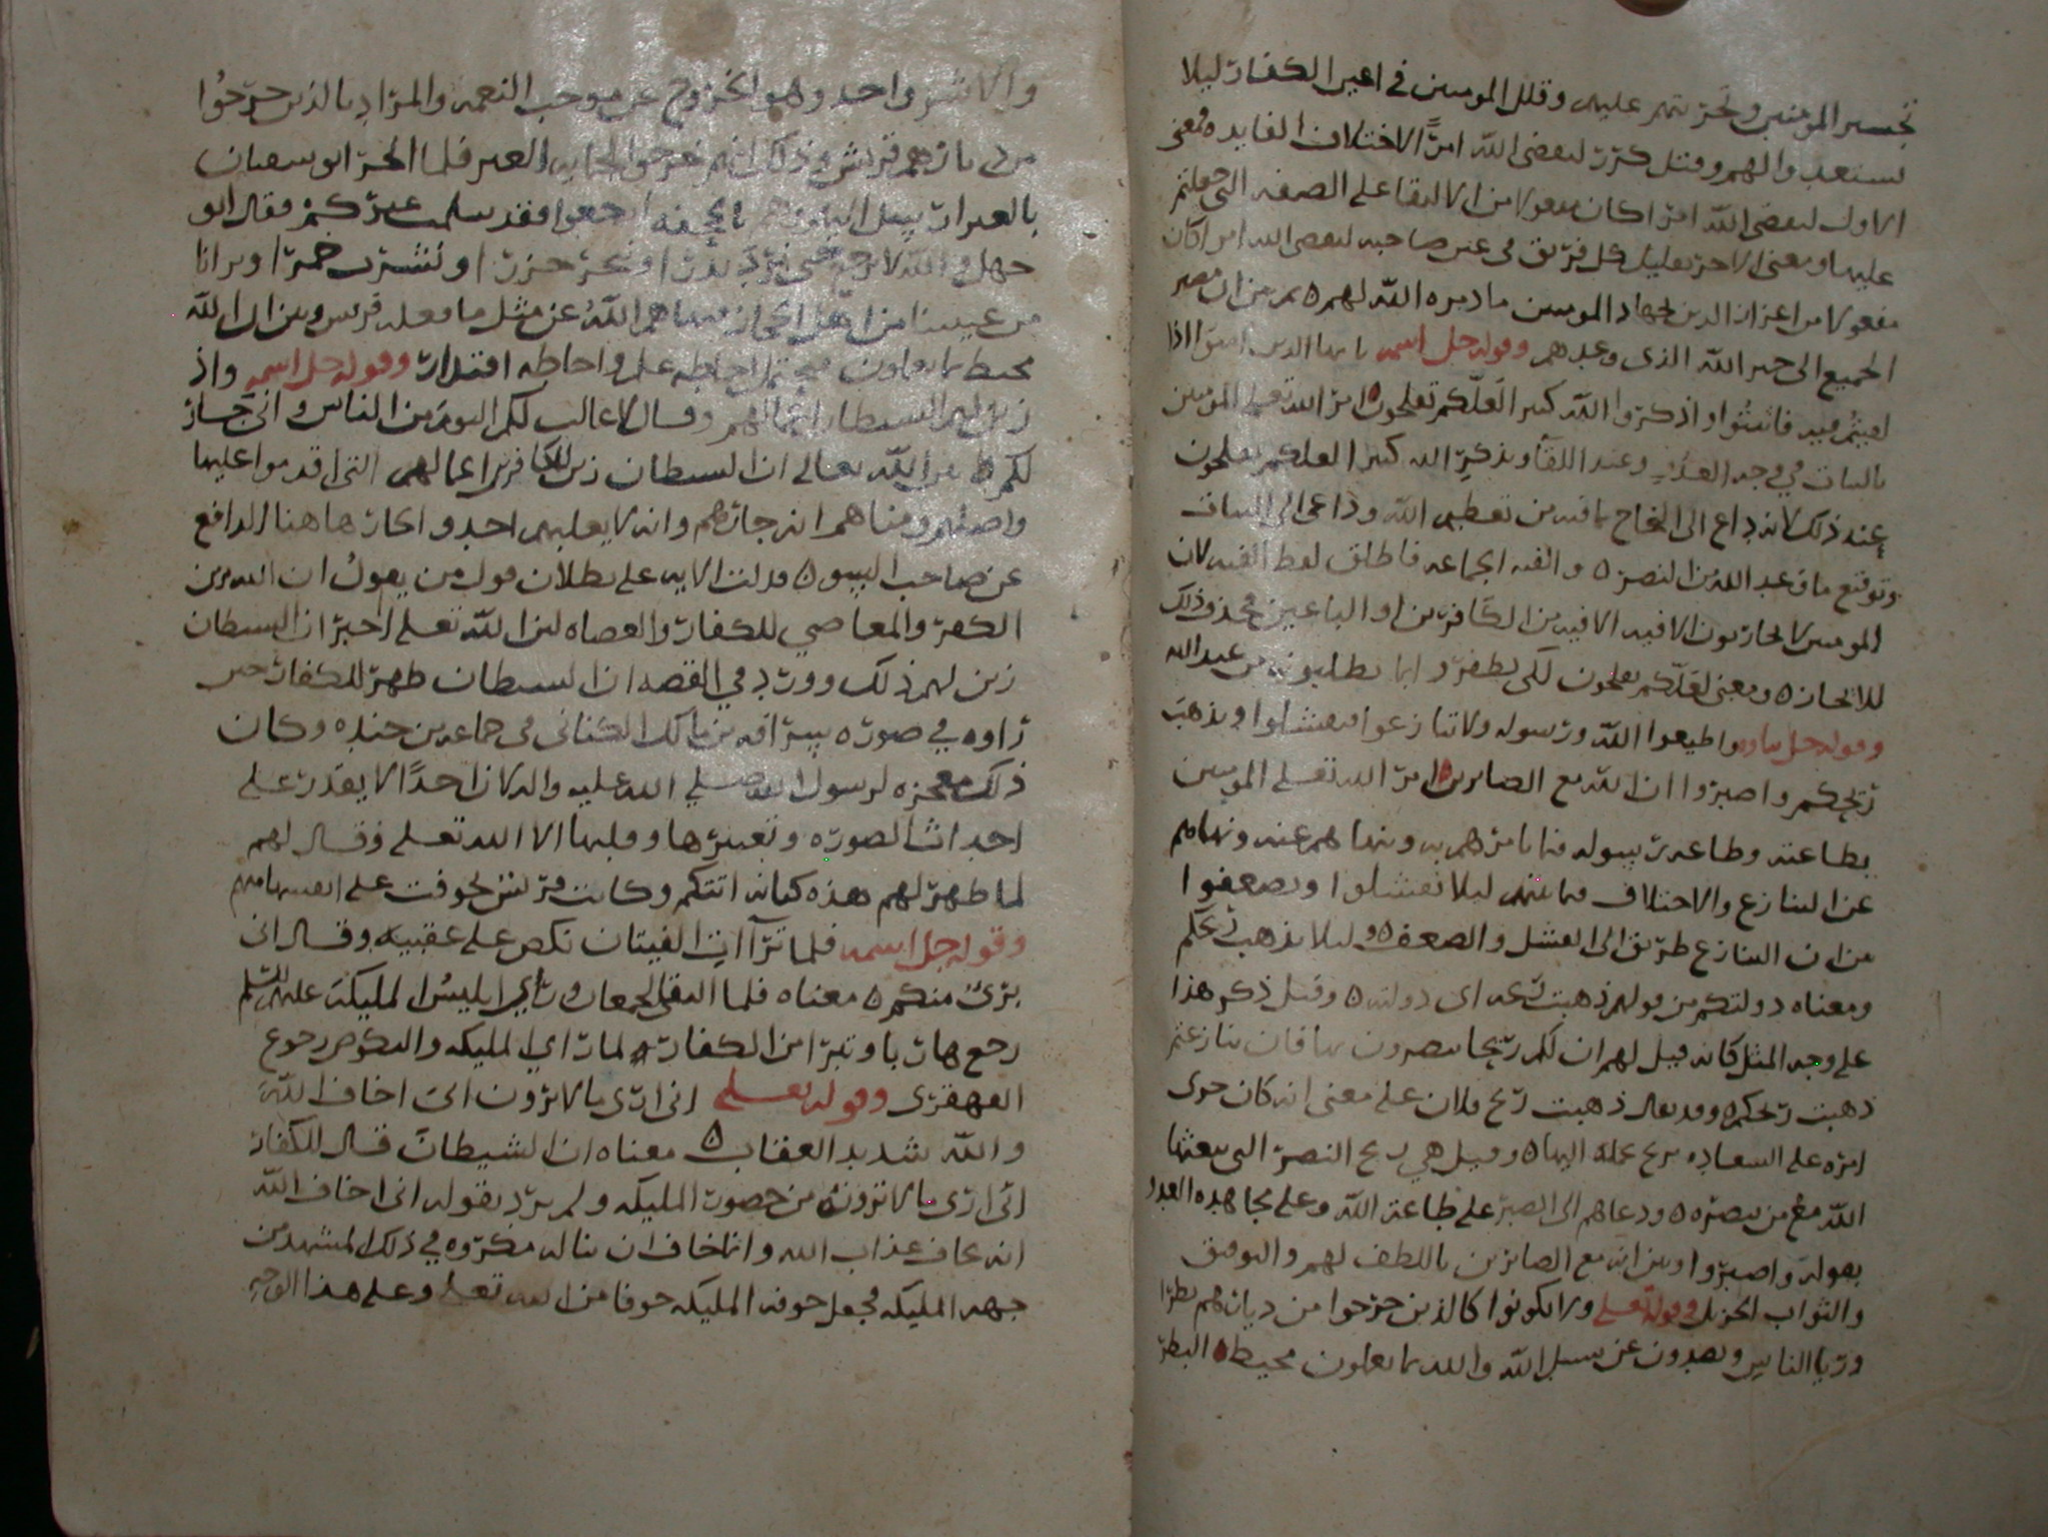 تجسير المومنين وتحريتهم عليهم وقلل المومنين في اعين الكفار ليلا
يستعدوا لهم وقيل كرر ليقضى الله امرًا لاختلاف الفايده فمعنى
الاول ليقضى الله امرا كان مفعولا من الالتقا على الصفه التى حملتم
عليها ومعنى الاخر تقليل كل فريق في عين صاحبه ليقضى الله امرا كان
مفعولا من اعزاز الدين بجهاد المومنين ما دبره الله لهم ٥ بين ان مصير
الجميع الى الله الذى وعدهم وقوله جل اسمه يا ايها الذين امنوا اذا
لقيتم فيه فاثبتوا واذكروا الله كثيرا لعلّكم تفلحون ٥ امر الله تعلى المومنين
بالثبات في وجه العدو وعند اللقآ وبذكر الله كثيرا لعلكم تفلحون
عند ذلك لانه داع الى النجاح بما فيه من تعظيم الله وداعى الى الثبات
وتوقع ما في عبد الله من النصر ٥ والفيه الجماعه فاطلق لفظ الفيه لان
المومنين لا يحاربون الا فيه الا فيه من الكافرين او الباغين فحذف ذلك
للايجاز ٥ ومعنى لعلّكم تفلحون لكى تظفروا بما تطلبونه من عند الله
وقوله جل ثناوه واطيعوا الله ورسوله ولا تنازعوا فتفشلوا وتذهب
ريحكم واصبروا ان الله مع الصابرين ٥ امر الله تعلى المومنين
بطاعته وطاعه رسوله فيما يامرهم به وينهاهم عنه ونهاهم
عن التنازع والاختلاف فيما بينهم ليلا تفشلوا وتضعفوا
من ان التنازع طريق الى الفشل والضعف ٥ وليلا تذهب ريحكم
ومعناه دولتكم من قولهم ذهبت ريحه اى دولته ٥ وقيل ذكر هذا
على وجه المثل كانه قيل لهم ان لكم ريحا تنصرون بها فان تنازعتم
ذهبت ريحكم ٥ وقد يقال ذهبت ريح فلان على معنى انه كان جرى
امره على السعاده بريح تحمله اليها ٥ وقيل هى ريح النصر التى يبعثها
الله مع من ينصره ٥ ودعاهم الى الصبر على طاعه الله وعلى مجاهده العدو
بقوله واصبروا وبين انه مع الصابرين باللطف لهم والتوفيق
والثواب الجزيل وقوله تعلى ولا تكونوا كالذين خرجوا من ديارهم بطرا
وريا الناس ويصدون عن سبيل الله والله بما يعملون محيط ٥ البطر
والاشر واحد وهو الخروج عن موجب النعمه والمراد بالذين خرجُوا
من ديارهم قريش وذلك انهم خرجوا لحمايه العير فلما ابو سفيان
بالعير ارسل اليهم وهم بالجحفه ارجعوا فقد سلمت عيركم فقال ابو
جهل والله لا نرجع حتى نرد بدرا وننحر جزرا ونشرب خمرا ويرانا
من غشينا من اهل الحجاز فنهاهم اللهُ عن مثل ما فعله قريش وبين ان الله
محيط بما يعملون يحتمل احاطه علم واحاطه اقتدار وقوله جل اسمه واذ
زين لهم الشيطان اعمالهم وقال لا غالب لكم اليوم من الناس وانى جار
لكم ٥ بين الله تعالى ان الشيطان زين للكافرين اعمالهم التى اقدموا عليها
ومناهم انه جارهم وانه لا يغلبهم احد والجار هاهنا الدافع
عن صاحبه السو ٥ فدلت الايه على بطلان قول من يقولُ ان الله زين
الكفر والمعاصي للكفار والعصاه لان الله تعلى اخبر ان الشيطان
زين لهم ذلك وورد في القصه ان الشيطان ظهر للكفار حتى
راوه في صوره سراقه بن مالك الكنانى في جماعه من جنده وكان
ذلك معجزه لرسول الله صلي الله عليه واله لان احدًا لا يقدر على
احداث الصوره وتغييرها وقلبها الا الله تعلى وقال لهم
لما ظهر لهم هذه كنانه اتتكم وكانت قريش تخوفت على انفسها منهم
وقوله جل اسمه فلما ترآات الفيتان نكص على عقبيه وقال انى
برىٌ منكم ٥ معناه فلما التقى الجمعان وراي ابليسُ المليكه عليهم السّلم
رجع هاربا وتبرا من الكفار لما راي المليكه والنكوص رجوع
القهقرى وقوله تعلى انى ارى ما لا ترون انى اخاف اللهَ
والله شديد العقاب ٥ معناه ان الشيطانَ قال للكفار
انى ارى ما لا ترونه من حضور المليكه ولم يرد بقوله انى اخاف الله
انه يخاف عذاب الله وانما خاف ان يناله مكروه في ذلك المشهد من
جهه المليكه فجعل خوفه المليكه خوفا من الله تعلى وعلى هذا الوجه